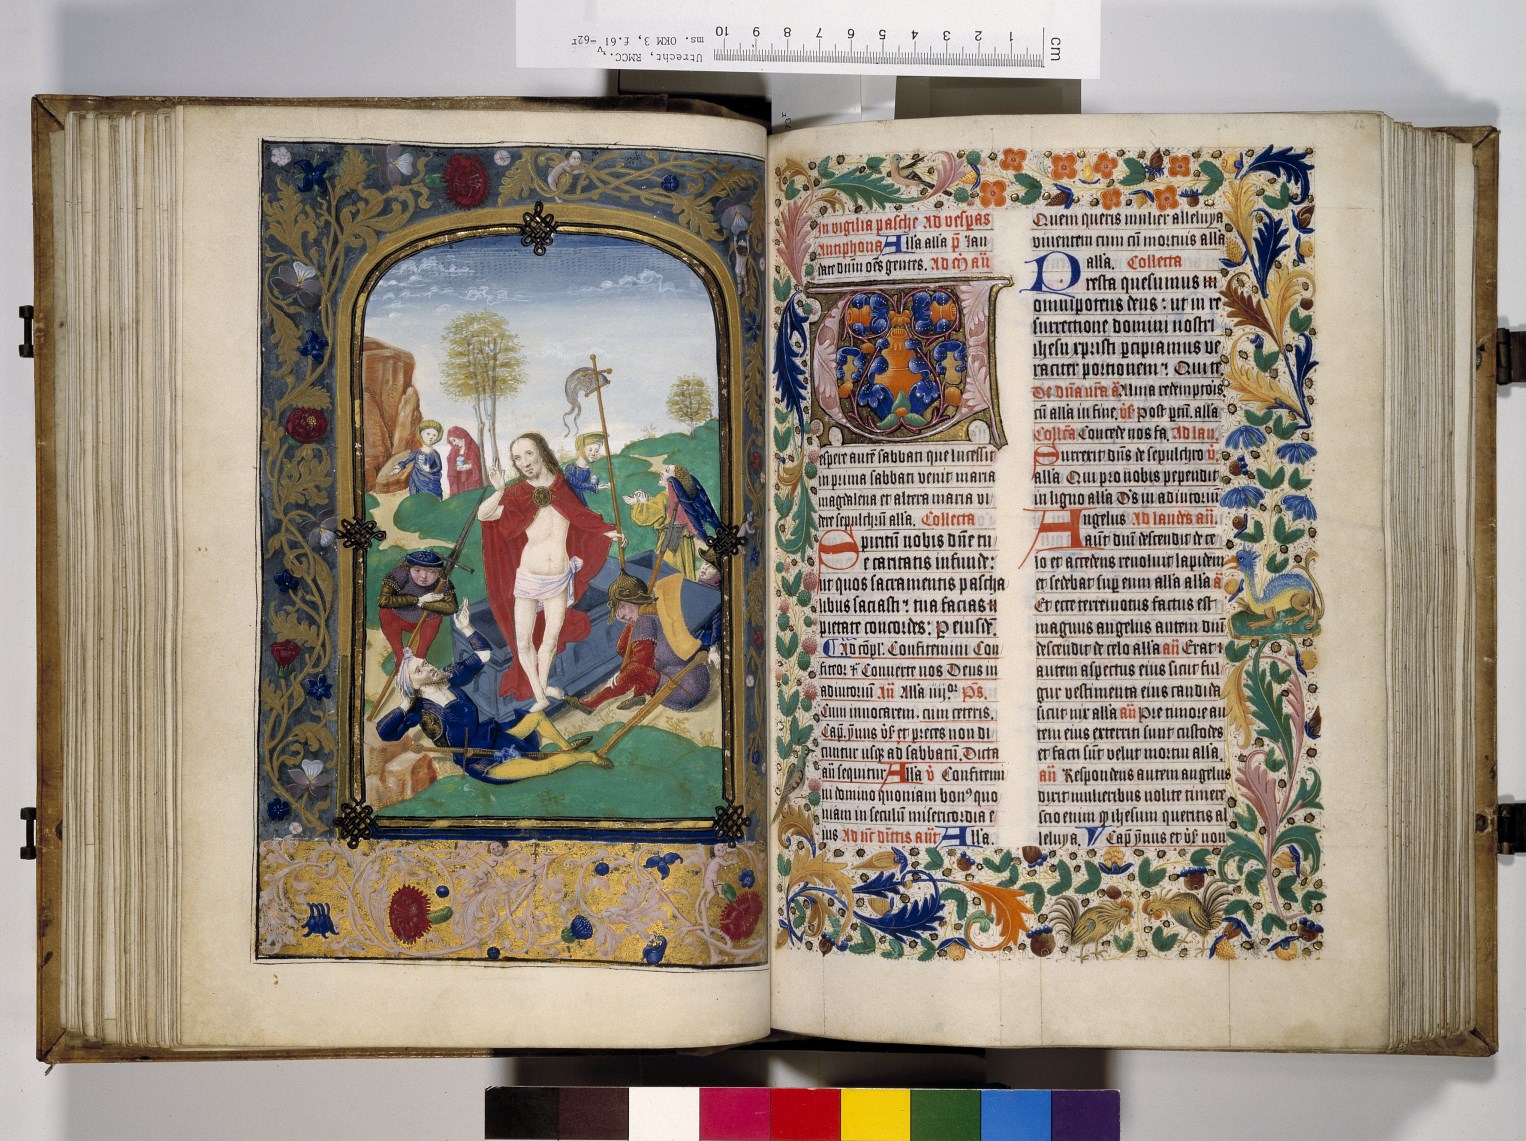 cm 1 2 3 4 5 6 7 8 9 10
Utrecht, RMCC.
ms. OKM 3, f.61v-62r
In vigilia pasche Ad vesperas
Antiphona Alla alla p̄ Lau
date dnm̄ oēs gentes. Ad
espere autē sabbati que lucessit
in prima sabbati venit maria
magdalena et altera maria vi
dere sepulchrū alla. Collecta
Spiritū nobis dn̄e tu
e caritatis infunde:
ut quos sacramentis pascha
libus saciasti: tua facias
pietate concordes: P eiusdē.
Ad cōpl. Confitemini Con
fiteor Converte nos Deus in
adiutoriū Añ Alla iiijor p̄s.
Cum invocarem. cum ceteris.
Cap. ymnus et preces non di
cuntur usqz ad sabbatū. Dicta
añ sequitur Alla v̄ Confitemi
ni domino quoniam bonꝰ quo
niam in seculū misericordia e
ius Alla.
Quem queris mulier alleluya
viventem cum mortuis alla
alla. Collecta
Presta quesumus
omnipotens deus: ut in re
surrectione domini nostri
ihesu xpristi percipiamus ve
raciter portionem: Qui te
Alma redemptoris
cū alla in fine. Post alla
Collcā Concede nos fa. Ad lau.
Surrexit dn̄s de sepulchro v̄
alla Qui pro nobis pependit
in ligno alla Ds in adiutoriū
Angelus Ad laudes añ.
autē dnī descendit de ce
lo et accedens revolvit lapidem
et sedebat sup eum alla alla
Et ecce terremotus factus est
magnus angelus autem dnī
descendit de celo alla añ Erat
autem aspectus eius sicut ful
gur vestimenta eius candida
sicut nix alla añ Pre timore au
tem eius exterriti sunt custodes
et facti sūt velut mortui alla.
añ Respondens autem angelus
dixit mulieribus nolite timere
scio enim qz ihesum queritis al
leluya. Cap ymnus et non